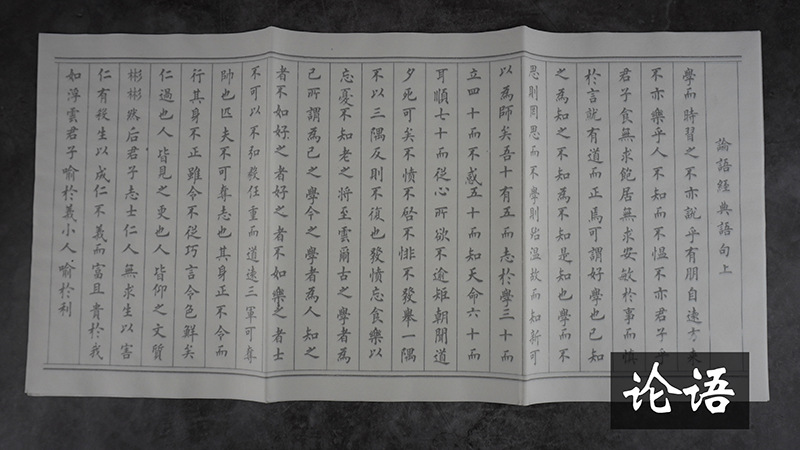 論語經典語句上
學而時習之不亦說乎有朋自遠方来
不亦樂乎人不知而不愠不亦君子乎
君子食無求飽居無求安敏於事而慎
於言就有道而正焉可謂好學也已知
之為知之不知為不知是知也學而不
思則罔思而不學則殆溫故而知新可
以為師矣吾十有五而志於學三十而
立四十而不惑五十而知天命六十而
耳順七十而從心所欲不逾矩朝聞道
夕死可矣不憤不啓不悱不發舉一隅
不以三隅反則不復也發憤忘食樂以
忘憂不知老之將至雲爾古之學者為
己所謂為己之學今之學者為人知之
者不如好之者好之者不如樂之者士
不可以不弘毅任重而道遠三軍可奪
帥也匹夫不可奪志也其身正不令而
行其身不正雖令不從巧言令色鮮矣
仁過也人皆見之更也人皆仰之文質
彬彬然后君子志士仁人無求生以害
仁有殺生以成仁不義而富且貴於我
如浮雲君子喻於義小人喻於利
论语